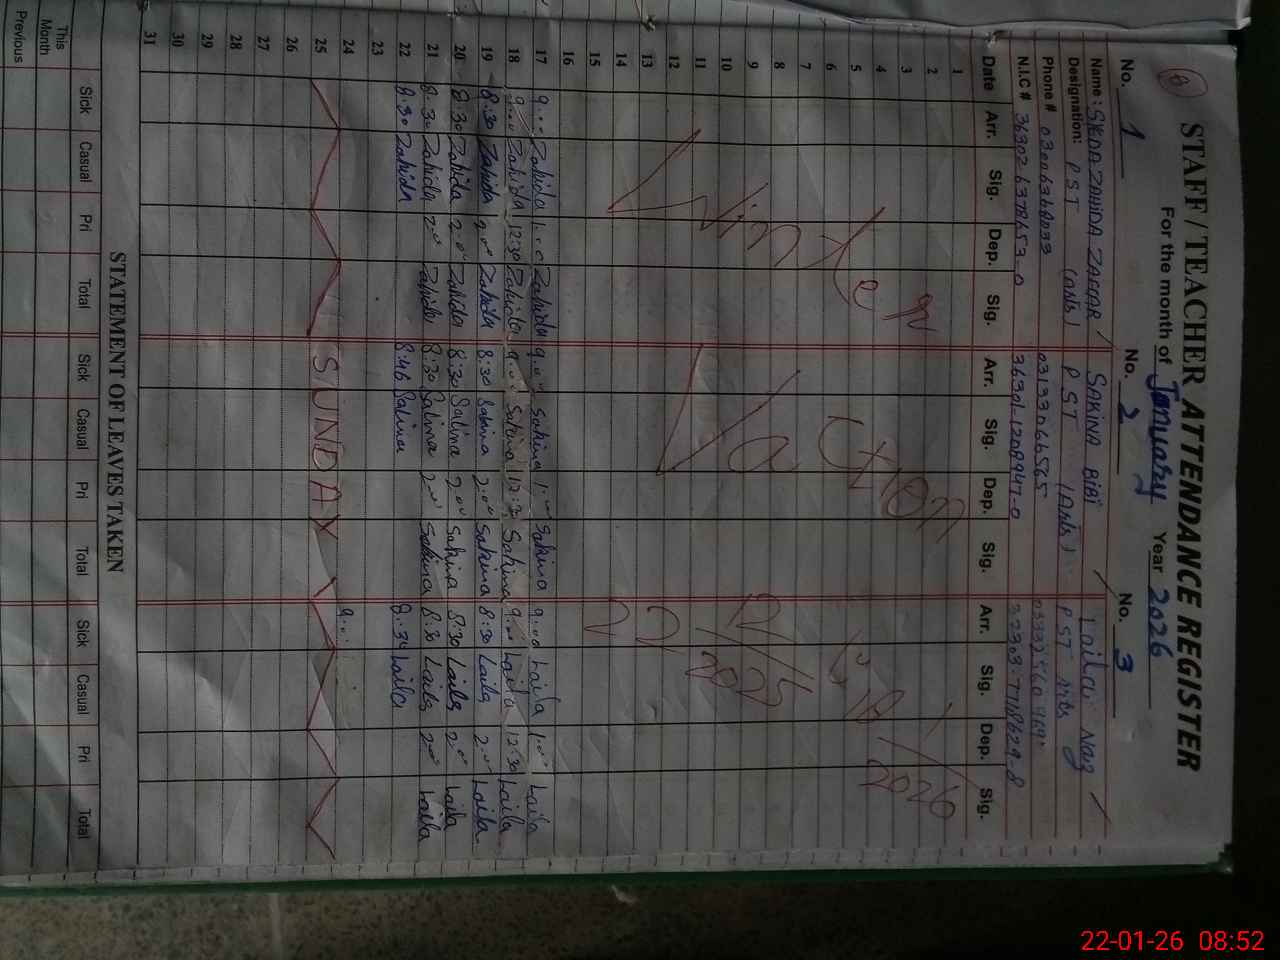 STAFF / TEACHER ATTENDANCE REGISTER
For the month of January Year 2026
No. 1 No. 2 No. 3
Name : SYEDA ZAHIDA ZAFFAR SAKINA BIBI Laila Naz
Designation: PST (Arts) PST (Arts) PST Arts
Phone # 03006368033 03133066565
N.I.C # 36302-6378653-0 36301-1208947-0
Date Arr. Sig. Dep. Sig. Arr. Sig. Dep. Sig. Arr. Sig. Dep. Sig.
1
2
3
4
5
6
7
8
9
10
11
12
13
14
15
16
Winter Vacation
22/12/2025 to 18/1/2026
17 9:00 Zahida 1:00 Zahida 9:00 Sakina 1:00 Sakina 9:00 Laila 1:00 Laila
18 9:00 Zahida 12:30 Zahida 9:00 Sakina 12:30 Sakina 9:00 Laila 12:30 Laila
19 8:30 Zahida 2:00 Zahida 8:30 Sakina 2:00 Sakina 8:30 Laila 2:00 Laila
20 8:30 Zahida 2:00 Zahida 8:30 Sakina 2:00 Sakina 8:30 Laila 2:00 Laila
21 8:30 Zahida 2:00 Zahida 8:30 Sakina 2:00 Sakina 8:30 Laila 2:00 Laila
22 8:30 Zahida 8:46 Sakina 8:34 Laila
23
24 9:00
25 SUNDAY
26
27
28
29
30
31
STATEMENT OF LEAVES TAKEN
Sick Casual Pri Total Sick Casual Pri Total Sick Casual Pri Total
This Month
Previous
22-01-26 08:52